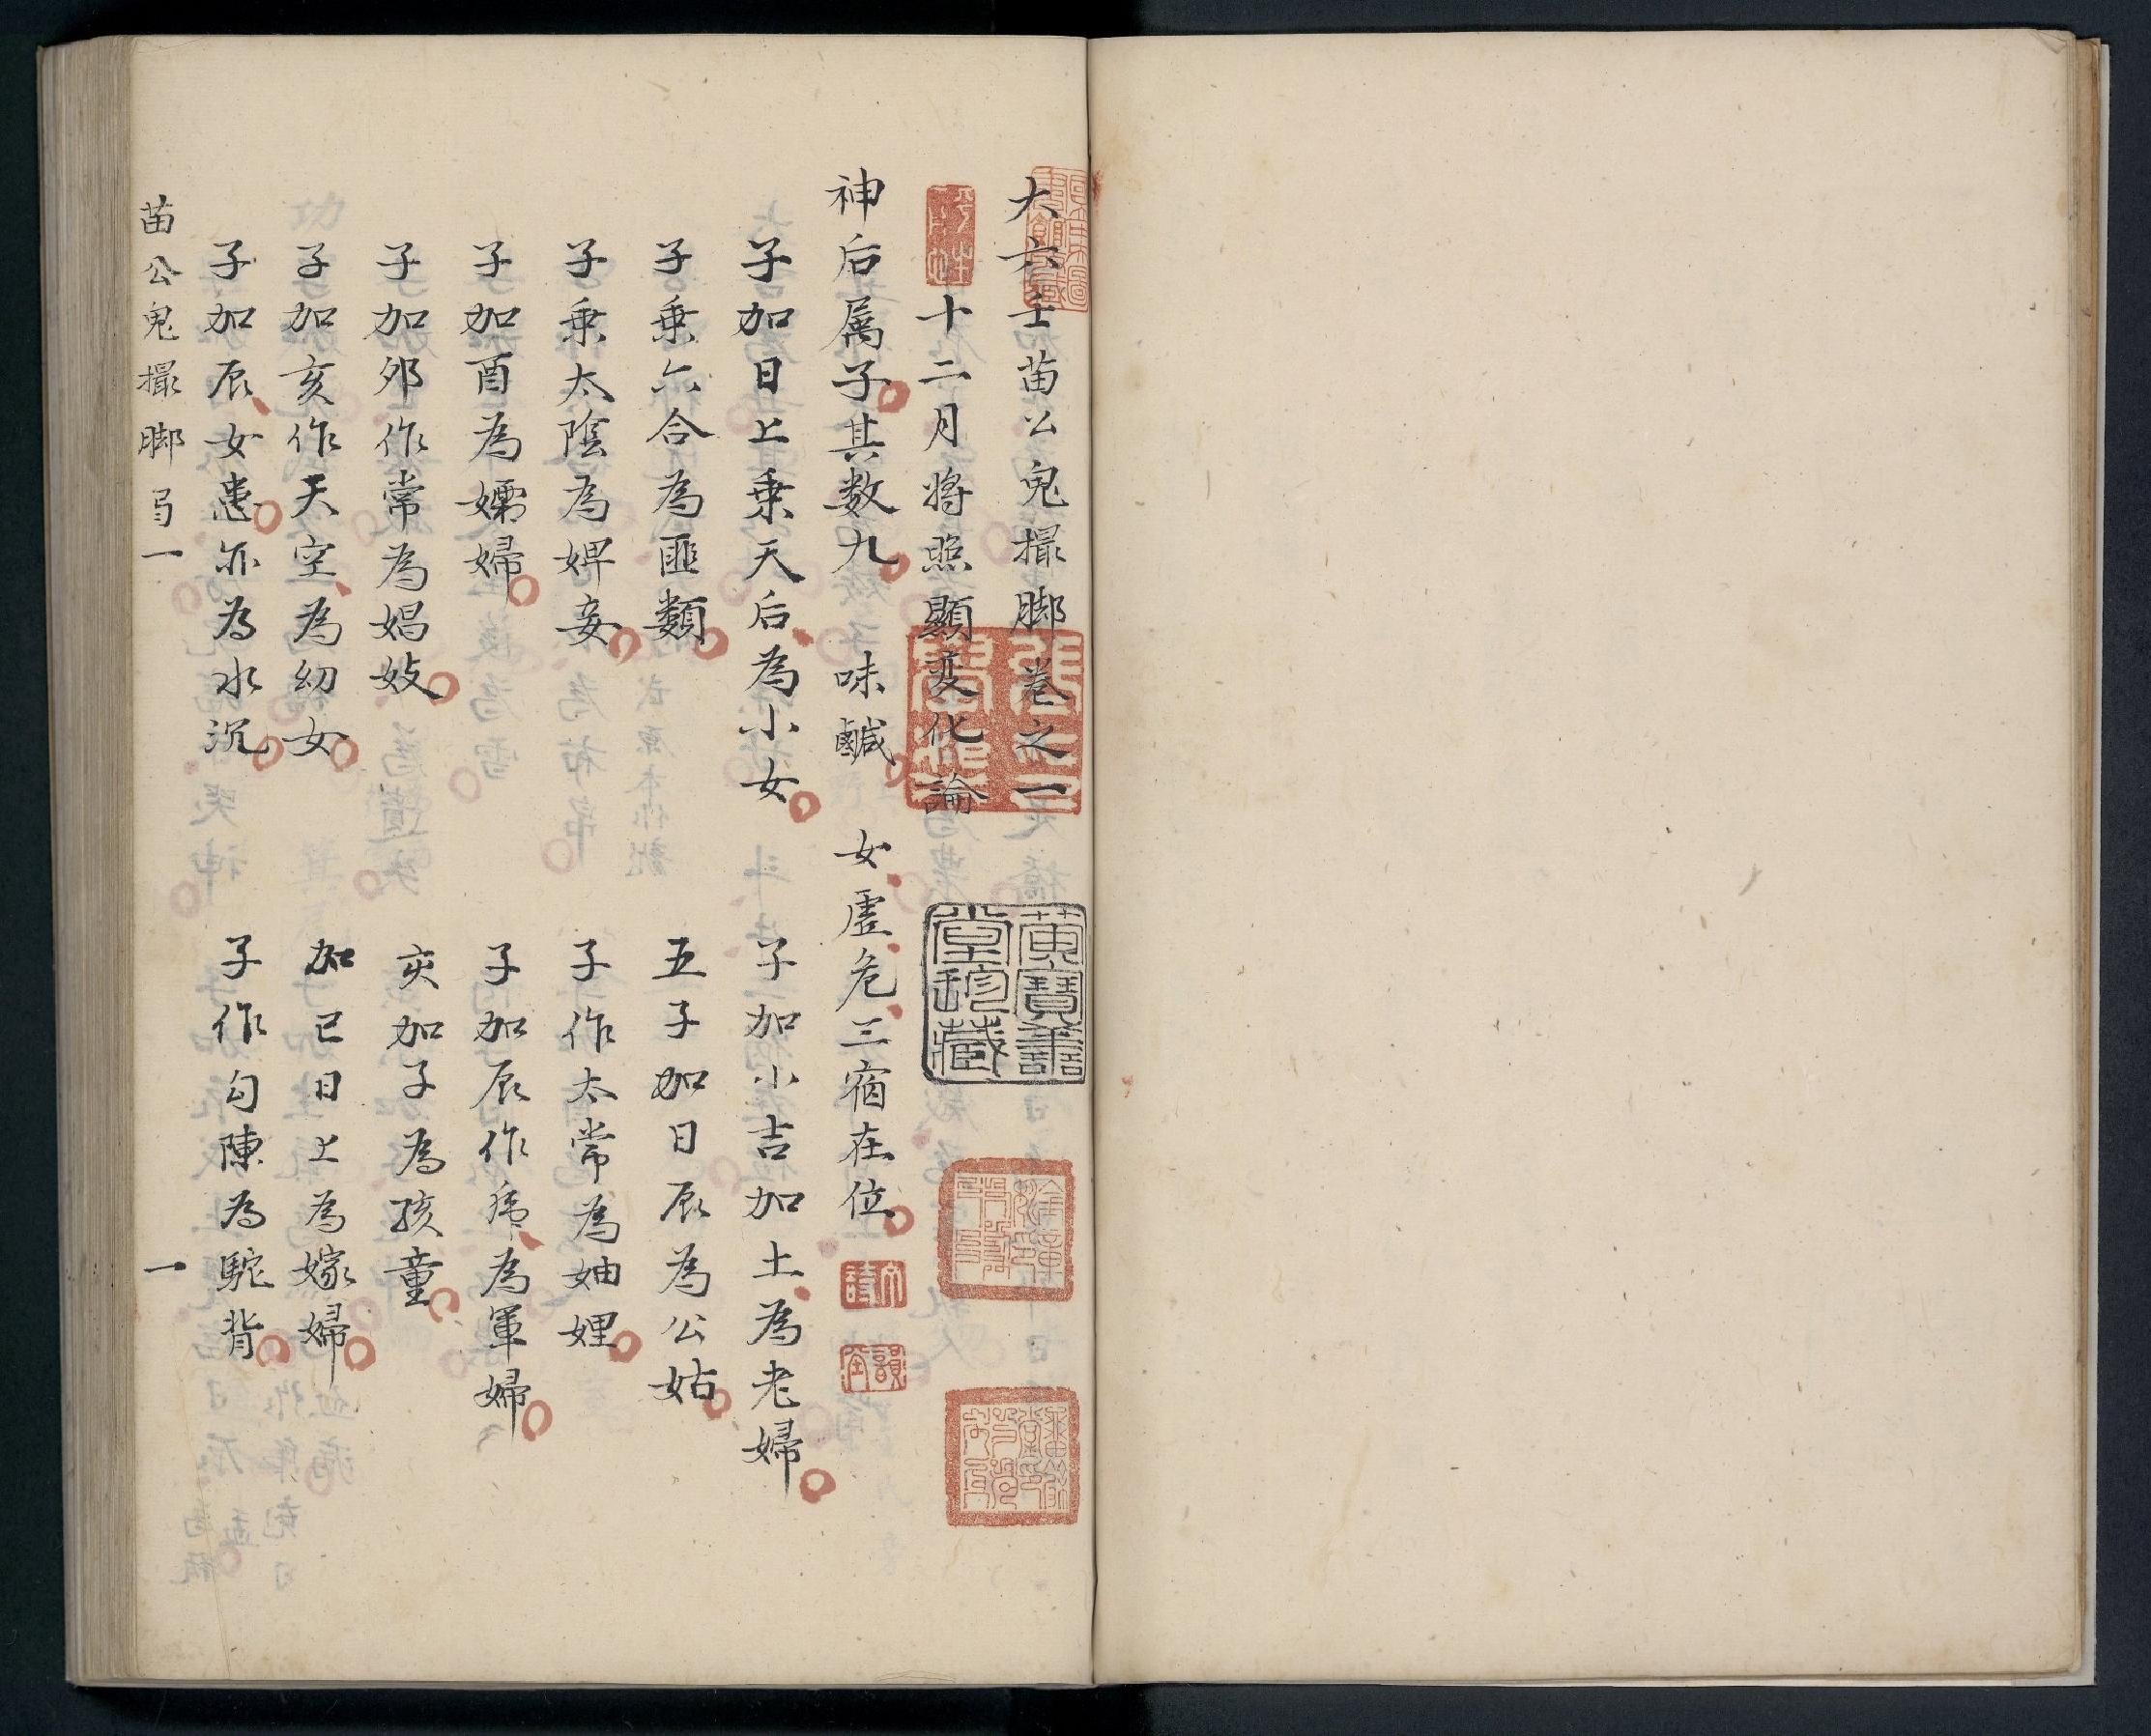 大六壬苗公鬼撮脚卷之一
十二月將照顯变化論
神后属子其数九 味鹹 女虚危三宿在位
子加日上乗天后為小女 子加小吉加土為老婦
子乗六合為匪類 五子加日辰為公姑
子乗太陰為婢妾 子作太常為妯娌
子加酉為孀婦 子加辰作虎為軍婦
子加夘作常為娼妓 亥加子為孩童
子加亥作天空為幼女 加己日上為嫁婦
子加辰女患亦為水沉 子作勾陳為駝背
苗公鬼撮脚 一 一
黄寶善堂珍藏